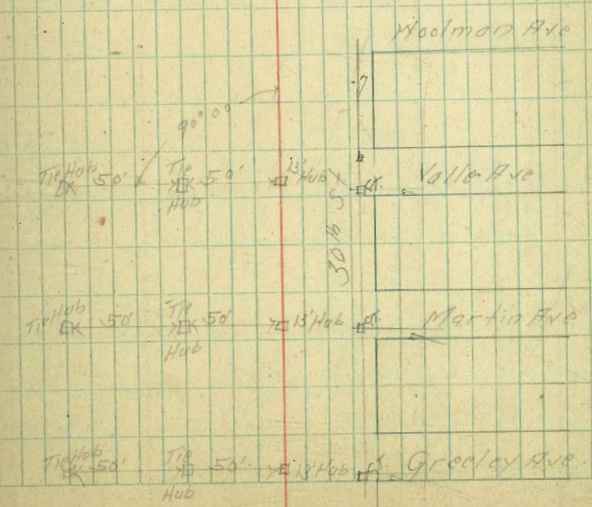 Woolman Ave
90° 00'
Tie Hub 50' Tie Hub 50' 13' Hub Valle Ave
30th S
Tie Hub 50' Tie Hub 50' 13' Hub Martin Ave
Tie Hub 50' Tie Hub 50' 13' Hub Greeley Ave.